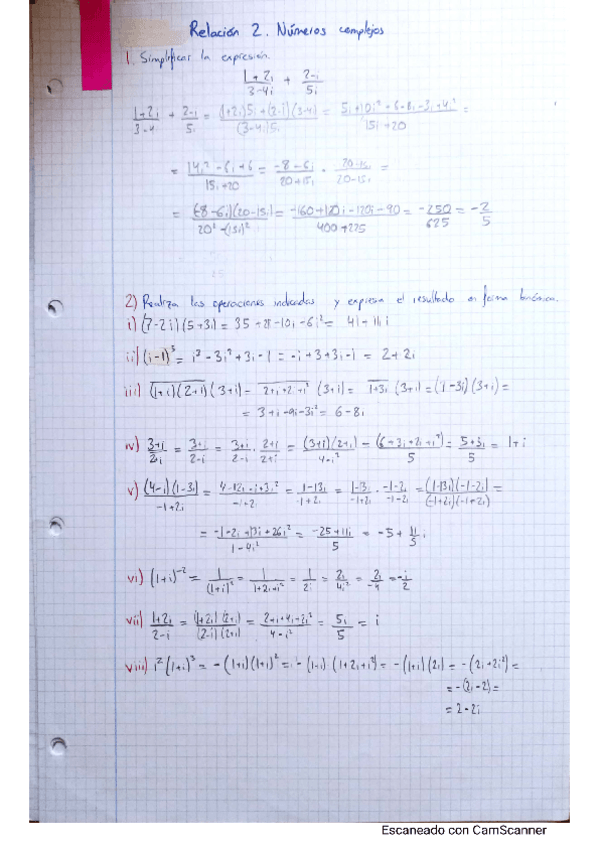 Relación 2. Números complejos
1. Simplificar la expresión.
1+2i/3-4i + 2-i/5i
1+2i/3-4 + 2-i/5i = (1+2i)5i+(2-i)(3-4i)/(3-4i)5i = 5i+10i²+6-8i-3i+4i²/15i+20 =
= 14i²-6i+6/15i+20 = -8-6i/20+15i · 20-15i/20-15i =
= (-8-6i)(20-15i)/20²-(15i)² = -160+120i-120i-90/400+225 = -250/625 = -2/5
2) Realiza las operaciones indicadas y expresa el resultado en forma binómica.
i) (7-2i)(5+3i) = 35+21i-10i-6i² = 41+11i
ii) (i-1)³ = i³-3i²+3i-1 = -i+3+3i-1 = 2+2i
iii) (1+i)(2+i)(3+i) = 2+i+2i+i² (3+i) = 1+3i (3+i) = (1-3i)(3+i) =
= 3+i-9i-3i² = 6-8i
iv) 3+i/2i = 3+i/2-i = 3+i/2-i · 2+i/2+i = (3+i)(2+i)/4-i² = (6+3i+2i+i²)/5 = 5+5i/5 = 1+i
v) (4-i)(1-3i)/-1+2i = 4-12i-i+3i²/-1+2i = 1-13i/-1+2i = 1-13i/-1+2i · -1-2i/-1-2i = (1-13i)(-1-2i)/(-1+2i)(-1+2i) =
= -1-2i+13i+26i²/1-4i² = -25+11i/5 = -5+11/5 i
vi) (1+i)⁻² = 1/(1+i)² = 1/1+2i+i² = 1/2i = 2i/4i² = 2i/-4 = -i/2
vii) 1+2i/2-i = (1+2i)(2+i)/(2-i)(2+i) = 2+i+4i+2i²/4-i² = 5i/5 = i
viii) i²(1+i)³ = -(1+i)(1+i)² = -(1+i)(1+2i+i²) = -(1+i)(2i) = -(2i+2i²) =
= -(2i-2) =
= 2-2i
Escaneado con CamScanner